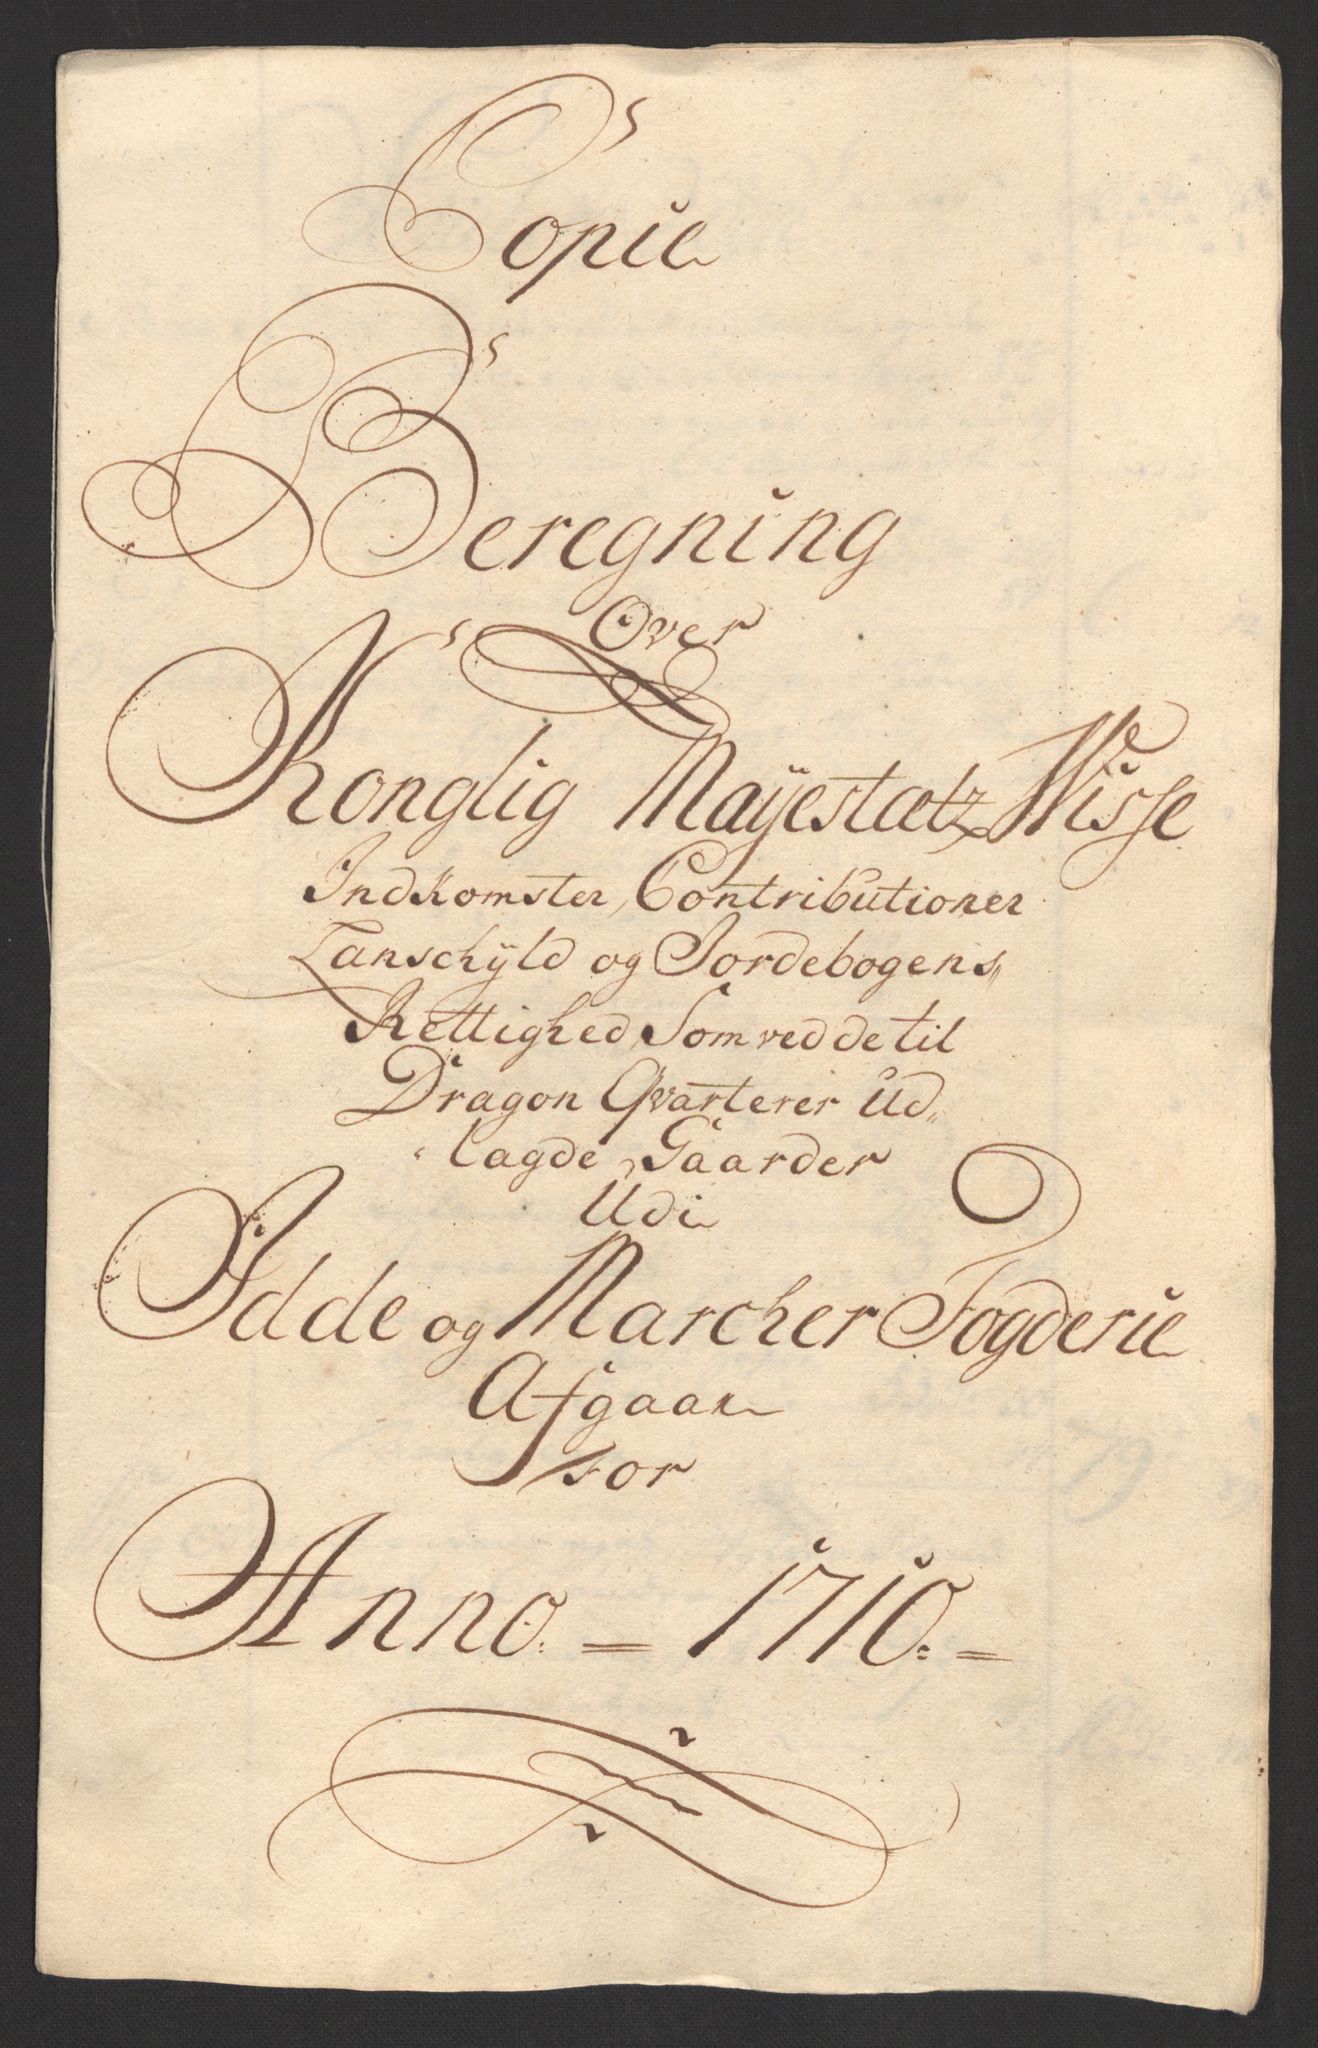 Copie
Beregning
Over
Konglig Mayestætz Wisse
Indkomster, Contributioner
Lanschÿld og Jordebogens
Rettighed, Som ved de til
Dragon Qvarterer Ud,,
lagde Gaarder
Udi
Idde og Marcher Fogderie
Afgaar
for
Anno. = 1710. =